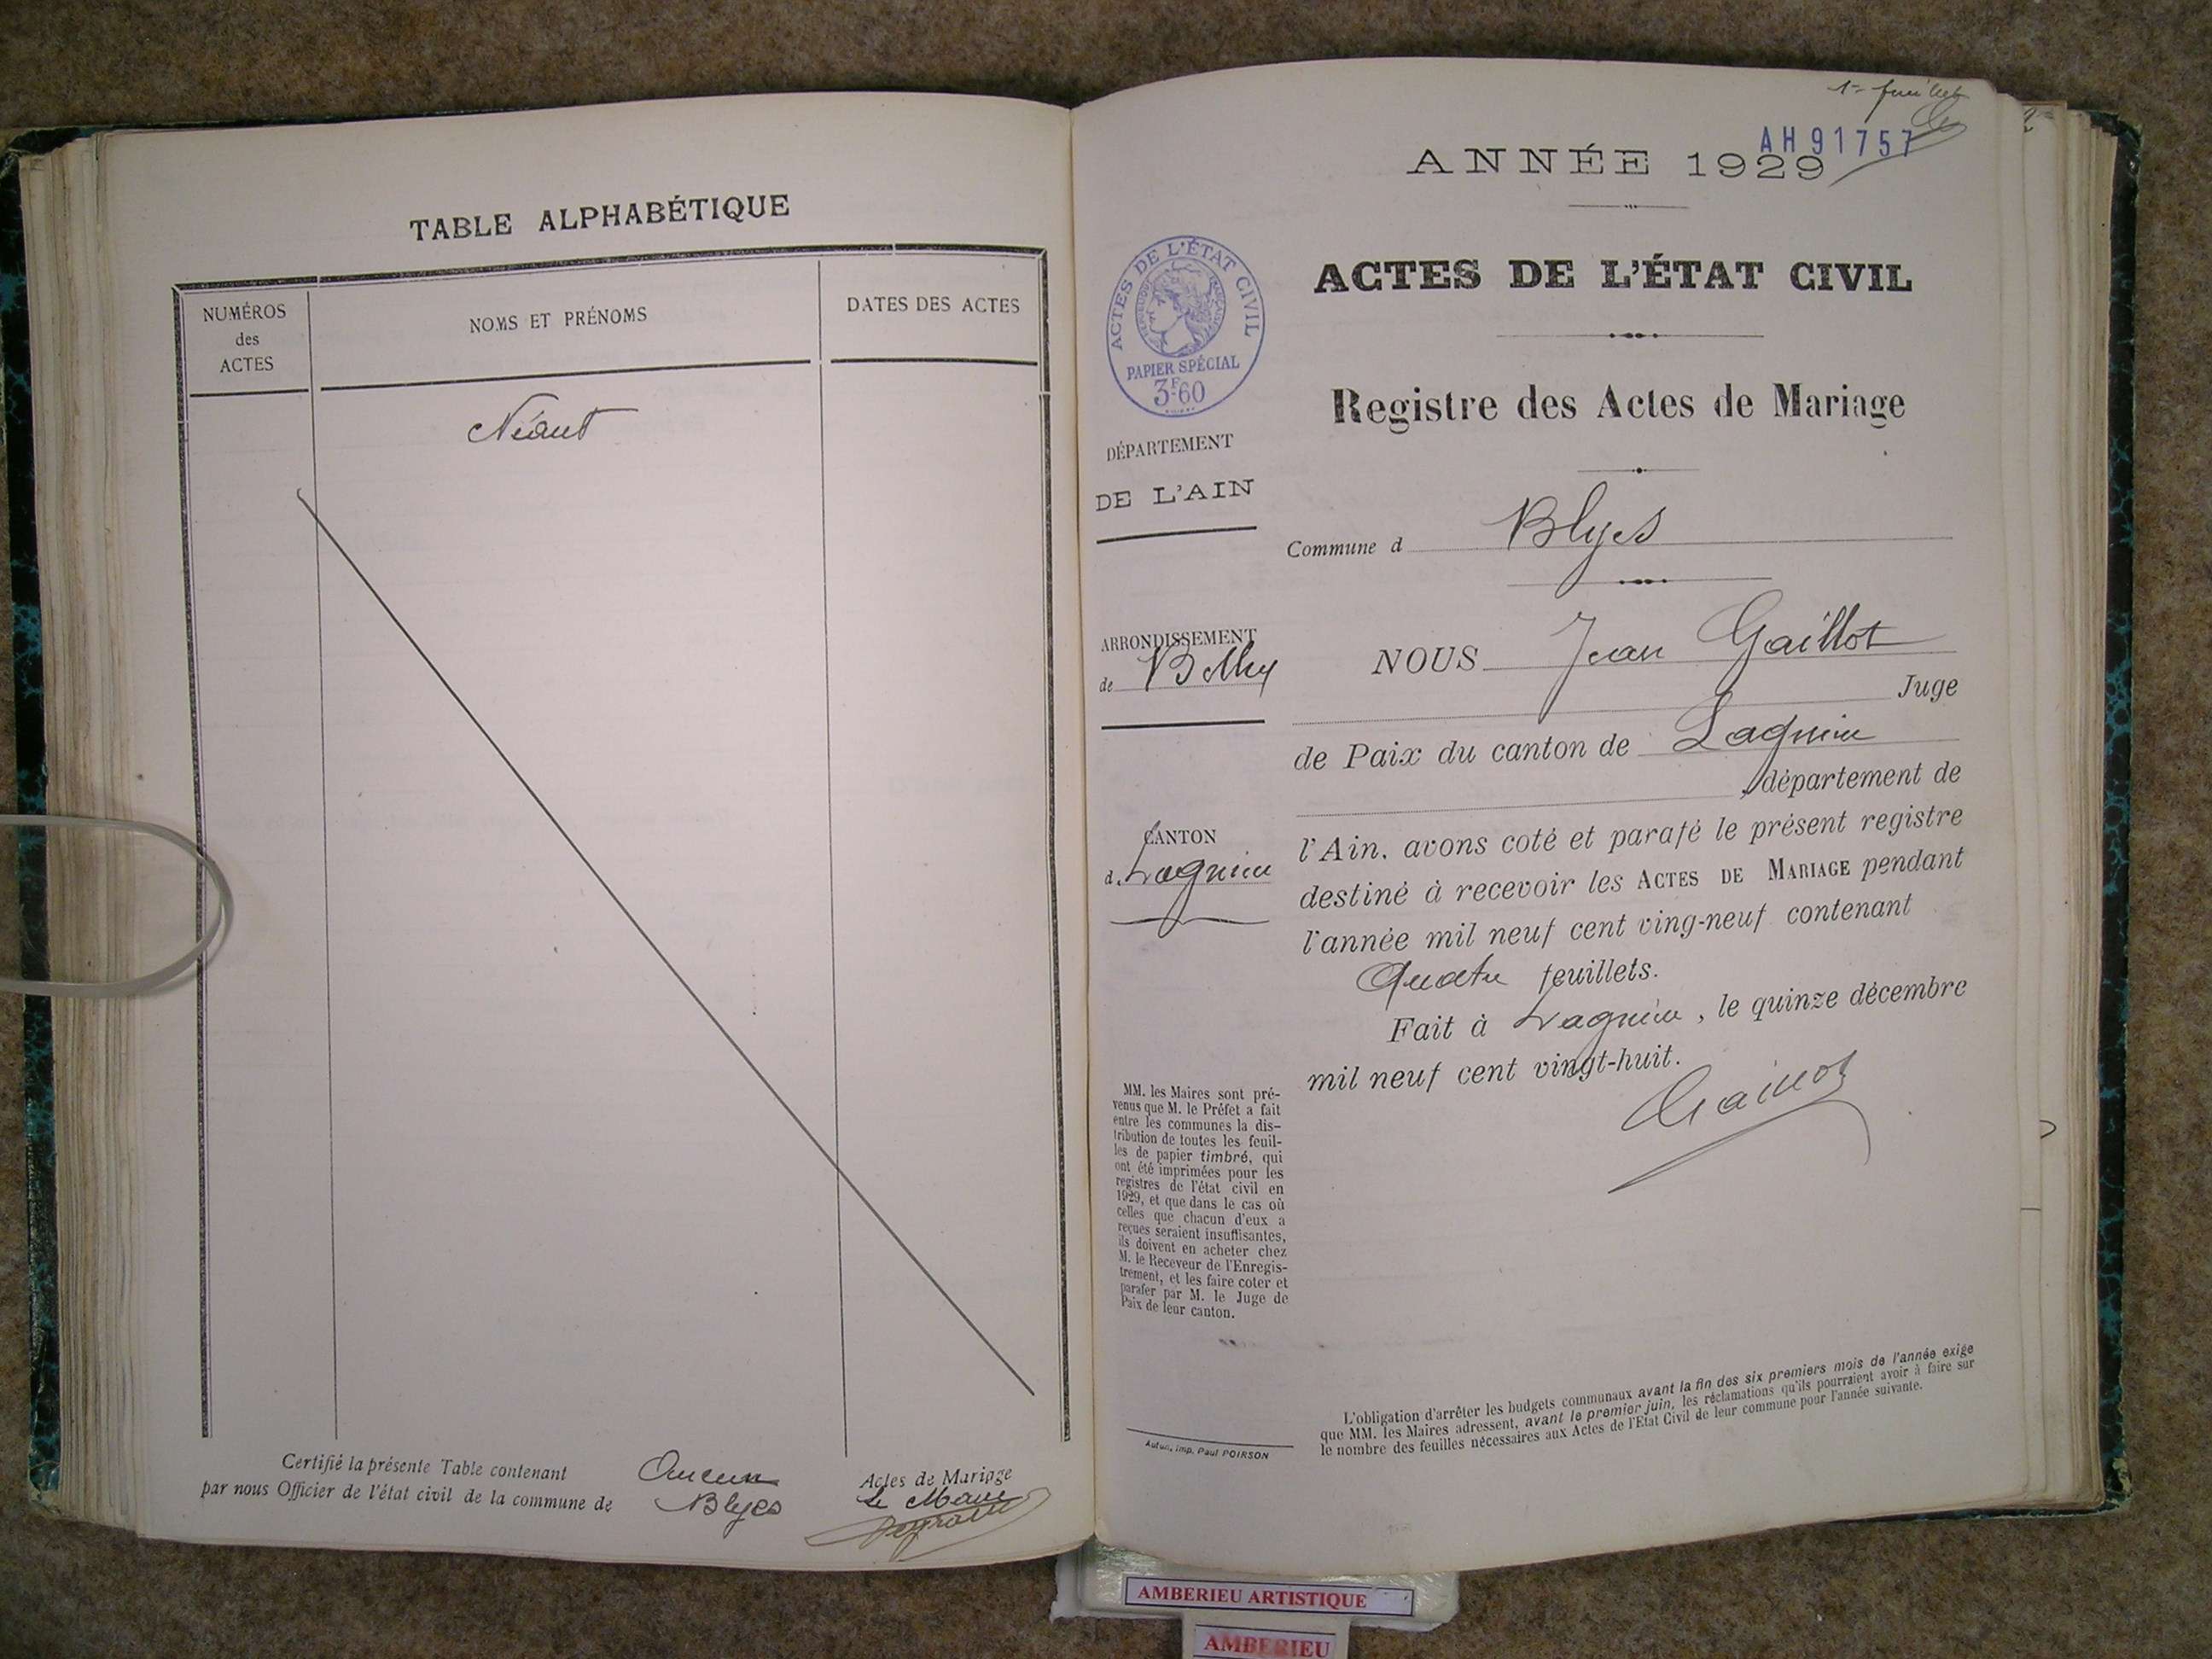 TABLE ALPHABÉTIQUE
NUMÉROS
des
ACTES
NOMS ET PRÉNOMS
DATES DES ACTES
Néant
Certifié la présente Table contenant Aucun Actes de Mariage
par nous Officier de l'état civil de la commune de Blyes Le Maire
1er feuillet
AH91757
ANNÉE 1929
ACTES DE L'ÉTAT CIVIL
Registre des Actes de Mariage
ACTES DE L'ÉTAT CIVIL
PAPIER SPÉCIAL
3F60
DÉPARTEMENT
DE L'AIN
Commune d Blyes
ARRONDISSEMENT
de Belley
CANTON
d. Lagnieu
NOUS Jean Gaillot
Juge
de Paix du canton de Lagnieu
, département de
l'Ain, avons coté et parafé le présent registre
destiné à recevoir les ACTES DE MARIAGE pendant
l'année mil neuf cent ving-neuf contenant
Quatre feuillets.
Fait à Lagnieu, le quinze décembre
mil neuf cent vingt-huit.
Gaillot
MM. les Maires sont pré-
venus que M. le Préfet a fait
entre les communes la dis-
tribution de toutes les feuil-
les de papier timbré, qui
ont été imprimées pour les
registres de l'état civil en
1929, et que dans le cas où
celles que chacun d'eux a
reçues seraient insuffisantes,
ils doivent en acheter chez
M. le Receveur de l'Enregis-
trement, et les faire coter et
parafer par M. le Juge de
Paix de leur canton.
Autun, Imp. Paul POIRSON
L'obligation d'arrêter les budgets communaux avant la fin des six premiers mois de l'année exige
que MM. les Maires adressent, avant le premier juin, les réclamations qu'ils pourraient avoir à faire sur
le nombre des feuilles nécessaires aux Actes de l'Etat Civil de leur commune pour l'année suivante.
AMBERIEU ARTISTIQUE
AMBERIEU